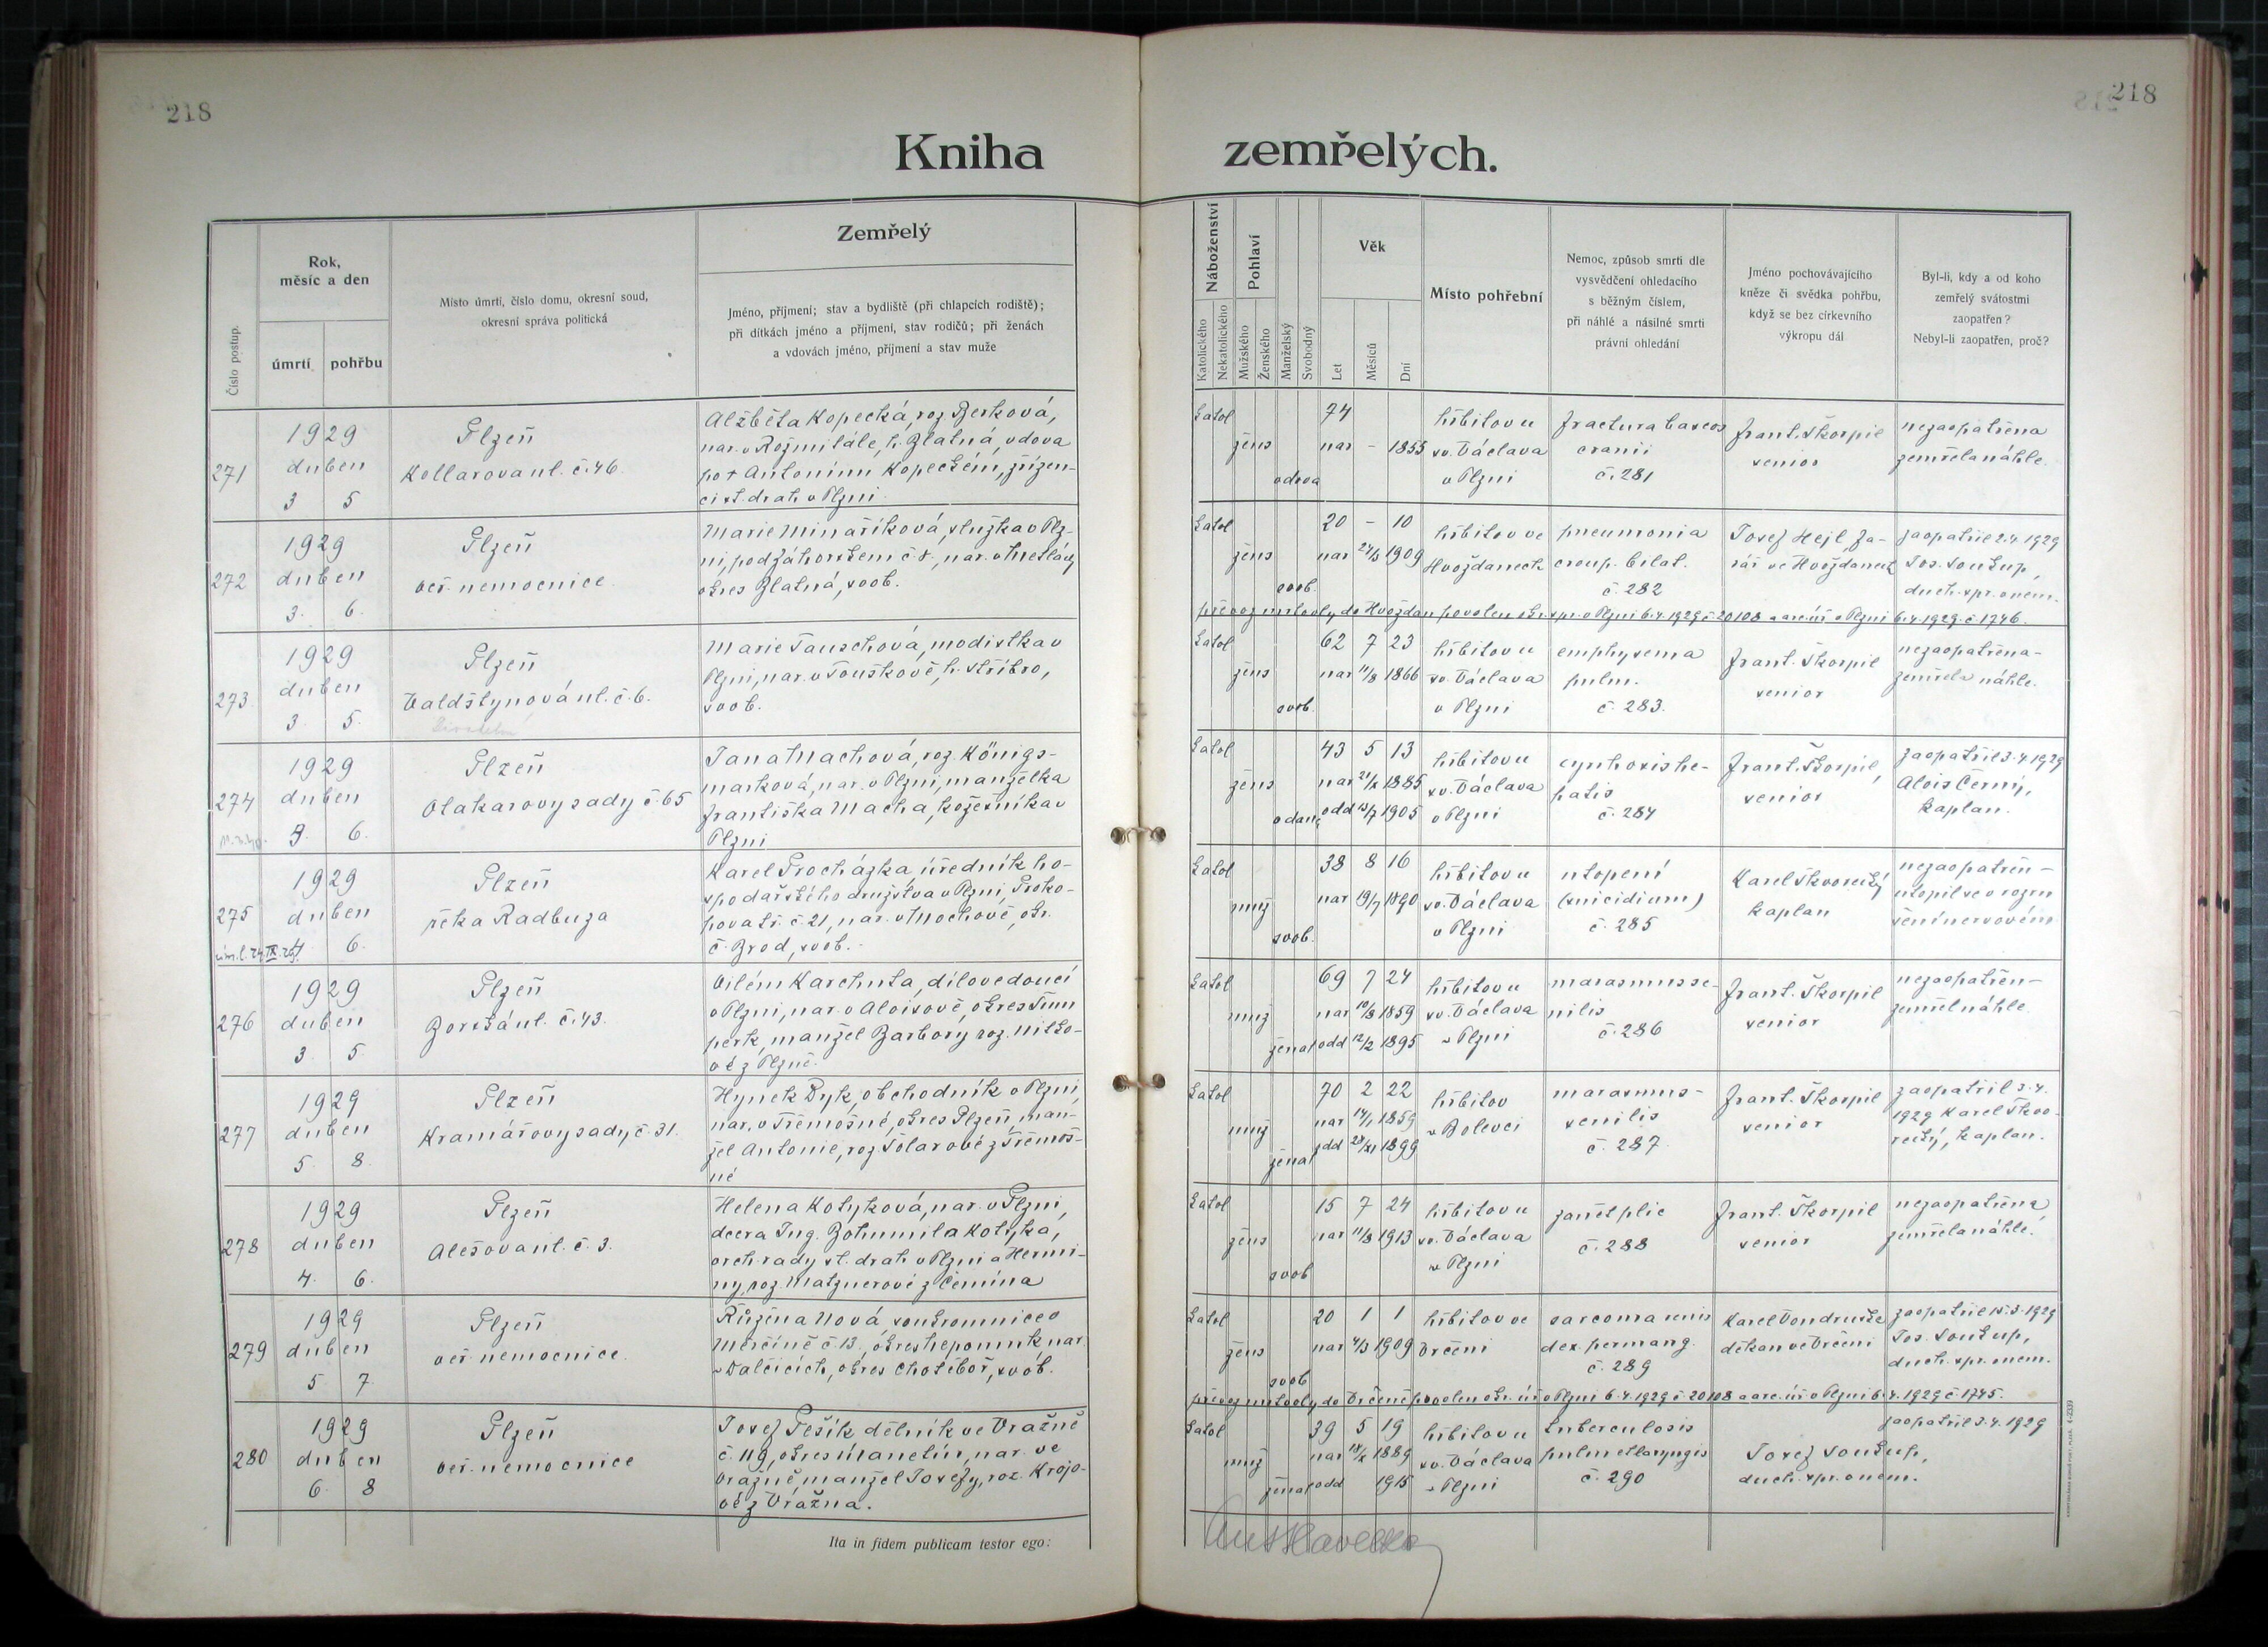 218
218
Kniha zemřelých.
Číslo postup.
Rok,
měsíc a den
úmrtí
pohřbu
Místo úmrtí, číslo domu, okresní soud,
okresní správa politická
Zemřelý
Jméno, příjmení; stav a bydliště (při chlapcích rodiště);
při dítkách jméno a příjmení, stav rodičů; při ženách
a vdovách jméno, příjmení a stav muže
Náboženství
Katolického
Nekatolického
Pohlaví
Mužského
Ženského
Manželský
Svobodný
Věk
Let
Měsíců
Dní
Místo pohřební
Nemoc, způsob smrti dle
vysvědčení ohledacího
s běžným číslem,
při náhlé a násilné smrti
právní ohledání
Jméno pochovávajícího
kněze či svědka pohřbu,
když se bez církevního
výkropu dál
Byl-li, kdy a od koho
zemřelý svátostmi
zaopatřen?
Nebyl-li zaopatřen, proč?
271
1929
duben
3 5
Plzeň
Kollarova ul. č. 46.
Alžběta Kopecká, roz. Berková,
nar. v Rožmitále, h. Blatná, vdova
po † Antonínu Kopeckém, zřízen-
ci st. drah v Plzni.
katol
žens
vdova
74
nar - 1855
hřbitov u
sv. Václava
v Plzni
fractura baseos
cranii
č. 281
Frant. Škorpil
senior
nezaopatřena
zemřela náhle.
272
1929
duben
3. 6.
Plzeň
veř. nemocnice.
Marie Minaříková, služka v Plz-
ni, pod Záhorskem č. 8., nar. v Metlách
okres Blatná, svob.
katol
žens
svob.
20 - 10
nar 24/3 1909
hřbitov ve
Hvožďanech
pneumonia
croup. bilat.
č. 282
Josef Hejl, fa-
rář ve Hvožďanech
zaopatřil 2.4.1929
Jos. Soukup,
duch. spr. v nem.
převoz mrtvoly do Hvožďan povolen okr. spr. v Plzni 6.4.1929 č. 20108 a arc. úř. v Plzni 6.4.1929 č. 1746.
273
1929
duben
3. 5.
Plzeň
Valdštýnová ul. č. 6.
Marie Tauschová, modistka v
Plzni, nar. v Touškově, h. Stříbro,
svob.
katol
žens
svob.
62 7 23
nar 11/8 1866
hřbitov u
sv. Václava
v Plzni
emphysema
pulm.
č. 283.
Frant. Škorpil
senior
nezaopatřena-
zemřela náhle.
274
1929
duben
3. 6.
Plzeň
Otakarovy sady č. 65
Jana Machová, roz. Königs-
marková, nar. v Plzni, manželka
Františka Macha, koželuníka v
Plzni
katol
žens
vdaná
43 5 13
nar 21/X 1885
odd 15/7 1905
hřbitov u
sv. Václava
v Plzni
cyrrhosis he-
patis
č. 284
Frant. Škorpil,
senior
zaopatřil 3.4.1929
Alois Černý,
kaplan.
275
1929
duben
4. 6.
Plzeň
řeka Radbuza
Karel Procházka, úředník ho-
spodářského družstva v Plzni, Proko-
pova tř. č. 21, nar. v Mochově, okr.
č. Brod, svob.
katol
muž
svob.
38 8 16
nar 19/7 1890
hřbitov u
sv. Václava
v Plzni
utopení
(suicidium)
č. 285
Karel Skvorecký
kaplan
nezaopatřen-
utopil se v rozru
šení nervovém
276
1929
duben
3. 5
Plzeň
Borská ul. č. 43.
Vilém Karchuta, dílovedoucí
v Plzni, nar. v Aloisově, okres Šum
perk, manžel Barbory roz. Mitko-
vé z Plzně.
katol
muž
ženat
69 7 24
nar 10/8 1859
odd 12/2 1895
hřbitov u
sv. Václava
v Plzni
marasmus se-
nilis
č. 286
Frant. Škorpil
senior
nezaopatřen-
zemřel náhle.
277
1929
duben
5. 8.
Plzeň
Kramářovy sady, č. 31.
Hynek Dyk, obchodník v Plzni,
nar. v Třemošné, okres Plzeň, man-
žel Antonie, roz. Šolarové z Třemoš-
né
katol
muž
ženat
70 2 22
nar 14/1 1859
odd 28/XI 1899
hřbitov
v Bolevci
marasmus-
senilis
č. 287.
Frant. Škorpil
senior
zaopatřil 3.4.
1929 Karel Škvo-
recký, kaplan.
278
1929
duben
4. 6.
Plzeň
Alešova ul. č. 3.
Helena Kotyková, nar. v Plzni,
dcera Ing. Bohumila Kotyka,
vrch. rady st. drah v Plzni a Hermi-
ny, roz. Matznerové z Čemína
katol
žens
svob
15 7 24
nar 11/8 1913
hřbitov u
sv. Václava
v Plzni
zánět plic
č. 288
Frant. Škorpil
senior
nezaopatřena,
zemřela náhle.
279
1929
duben
5 7.
Plzeň
veř. nemocnice.
Růžena Nová, soukromnice v
Měrčíně č. 13., okres Nepomuk nar
v Dalčicích, okres Chotěboř, svob.
katol
žens
svob
20 1 1
nar 4/3 1909
hřbitov ve
Vrčeni
sarcoma renis
dex. permang.
č. 289
Karel Vondruška
děkan ve Vrčeni
zaopatřil 15.3.1929
Jos. Soukup,
duch. spr. v nem.
převoz mrtvoly do Vrčeně povolen okr. úř. v Plzni 6.4.1929 č. 20108 a arc. úř. v Plzni 6.4.1929 č. 1745.
280
1929
duben
6. 8
Plzeň
veř. nemocnice
Josef Pešík dělník ve Vražně
č. 119, okres Manetín, nar. ve
Vražně, manžel Josefy, roz. Krojo-
vé z Vrážna.
katol
muž
ženat
39 5 19
nar 18/X 1889
odd 1915
hřbitov u
sv. Václava
v Plzni
tuberculosis
pulm et laryngis
č. 290
Josef Soukup,
duch. spr. v nem.
zaopatřil 3.4.1929
Ita in fidem publicam testor ego: